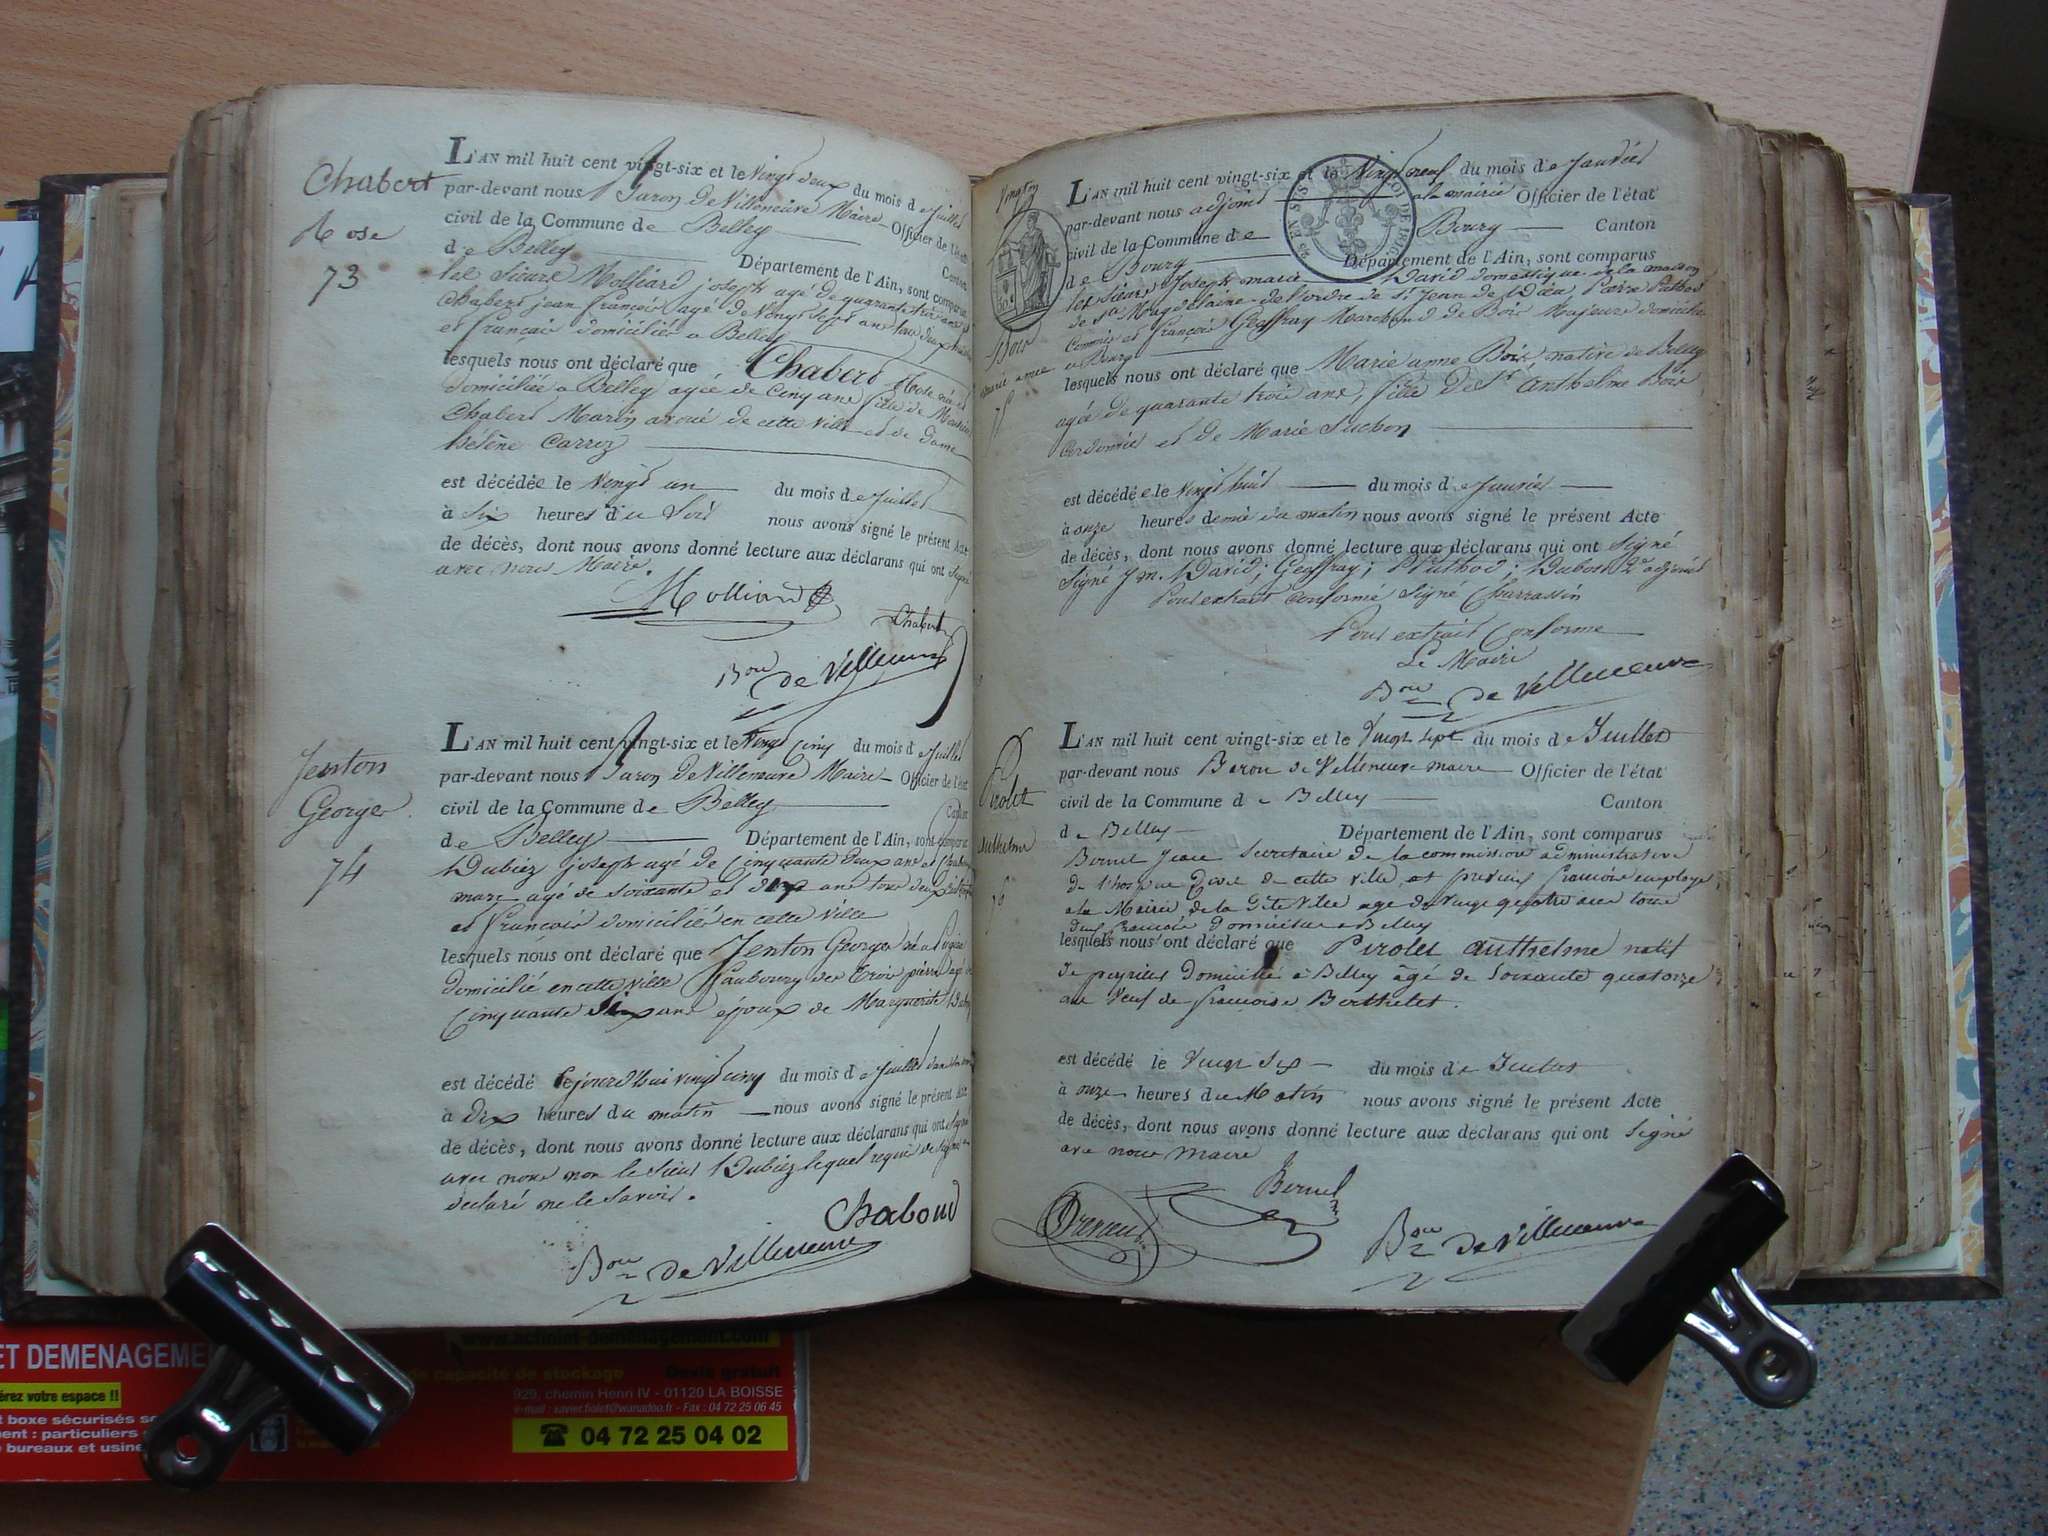 Chabert
Rose
73
L'AN mil huit cent vingt-six et le Vingt deux du mois de Juillet
par-devant nous Baron De Villeneuve Maire Officier de l'état
civil de la Commune de Belley Canton
de Belley Département de l'Ain, sont comparus
les Sieurs Molliard joseph agé de quarante trois ans
Chabert jean françois agé de Vingt sept ans tous deux
et français domiciliés a Belley
lesquels nous ont déclaré que Chabert Rose née et
domiciliée a Belley agée de Cinq ans fille de
Chabert Marin avoué de cette ville et de Dame
hélène Carrez
est décédée le Vingt un du mois de Juillet
à Six heures du Soir nous avons signé le présent Acte
de décès, dont nous avons donné lecture aux déclarans qui ont Signé
avec nous Maire.
Molliard
Chabert
Bon de Villeneuve
Jenton
George
74
L'AN mil huit cent vingt-six et le Vingt Cinq du mois de Juillet
par-devant nous Baron De Villeneuve Maire Officier de l'état
civil de la Commune de Belley Canton
de Belley Département de l'Ain, sont comparus
Dubiez joseph agé de Cinquante deux ans et
marc agé de soixante et dix ans tous deux
et françois domiciliés en cette ville
lesquels nous ont déclaré que Jenton George né a
domicilié en cette ville faubourg des trois pierres agé de
Cinquante Six ans époux de Marguerite
est décédé cejourd'hui vingt cinq du mois de Juillet
à Dix heures du matin nous avons signé le présent Acte
de décès, dont nous avons donné lecture aux déclarans qui ont Signé
avec nous non le Sieur Dubiez lequel requis de signer a
declaré ne le Savoir.
Chaboud
Bon de Villeneuve
Bois
marie anne
75
L'AN mil huit cent vingt-six et le Vingt neuf du mois de Janvier
par-devant nous adjoint a la mairie Officier de l'état
civil de la Commune de Bourg Canton
de Bourg Département de l'Ain, sont comparus
les sieurs Joseph marie David domestique de la maison
de Ste Magdelaine de l'ordre de St Jean de Dieu, Pierre Puthod
Commis et françois Geoffray Marchand de Bois Majeurs domiciliés
a Bourg
lesquels nous ont déclaré que Marie anne Bois, native de Belley
agée de quarante trois ans, fille de Sr Anthelme Bois
Cordonnier et de Marie Suchon
est décédée le Vingt huit du mois de Janvier
à onze heures demie du matin nous avons signé le présent Acte
de décès, dont nous avons donné lecture aux déclarans qui ont Signé
Signé J m. David; Geoffray; P Puthod; Dubost 2e adjoint
Pour extrait conforme Signé Charrassin
Pour extrait Conforme
Le Maire
Bon de Villeneuve
Pirolet
anthelme
76
L'AN mil huit cent vingt-six et le Vingt sept du mois de Juillet
par-devant nous Baron de Villeneuve maire Officier de l'état
civil de la Commune de Belley Canton
de Belley Département de l'Ain, sont comparus
Bernel Jean Secretaire de la commission administrative
de l'hospice Civil de cette ville, et françois employé
a la Mairie de la dite Ville agé de Vingt quatre ans tous
deux français Domiciliés a Belley
lesquels nous ont déclaré que Pirolet anthelme natif
de peyrieu Domicilié à Belley âgé de soixante quatorze
ans Veuf de françoise Berthelet.
est décédé le Vingt Six du mois de Juillet
à onze heures du Matin nous avons signé le présent Acte
de décès, dont nous avons donné lecture aux déclarans qui ont Signé
avec nous Maire
Bernel
Bon de Villeneuve
ET DEMENAGEME
érez votre espace !!
t boxe sécurisés
ment : particuliers
bureaux et usine
de capacité de stockage Devis gratuit
929, chemin Henri IV - 01120 LA BOISSE
e-mail : xavier.fiolet@wanadoo.fr - Fax : 04 72 25 06 45
04 72 25 04 02